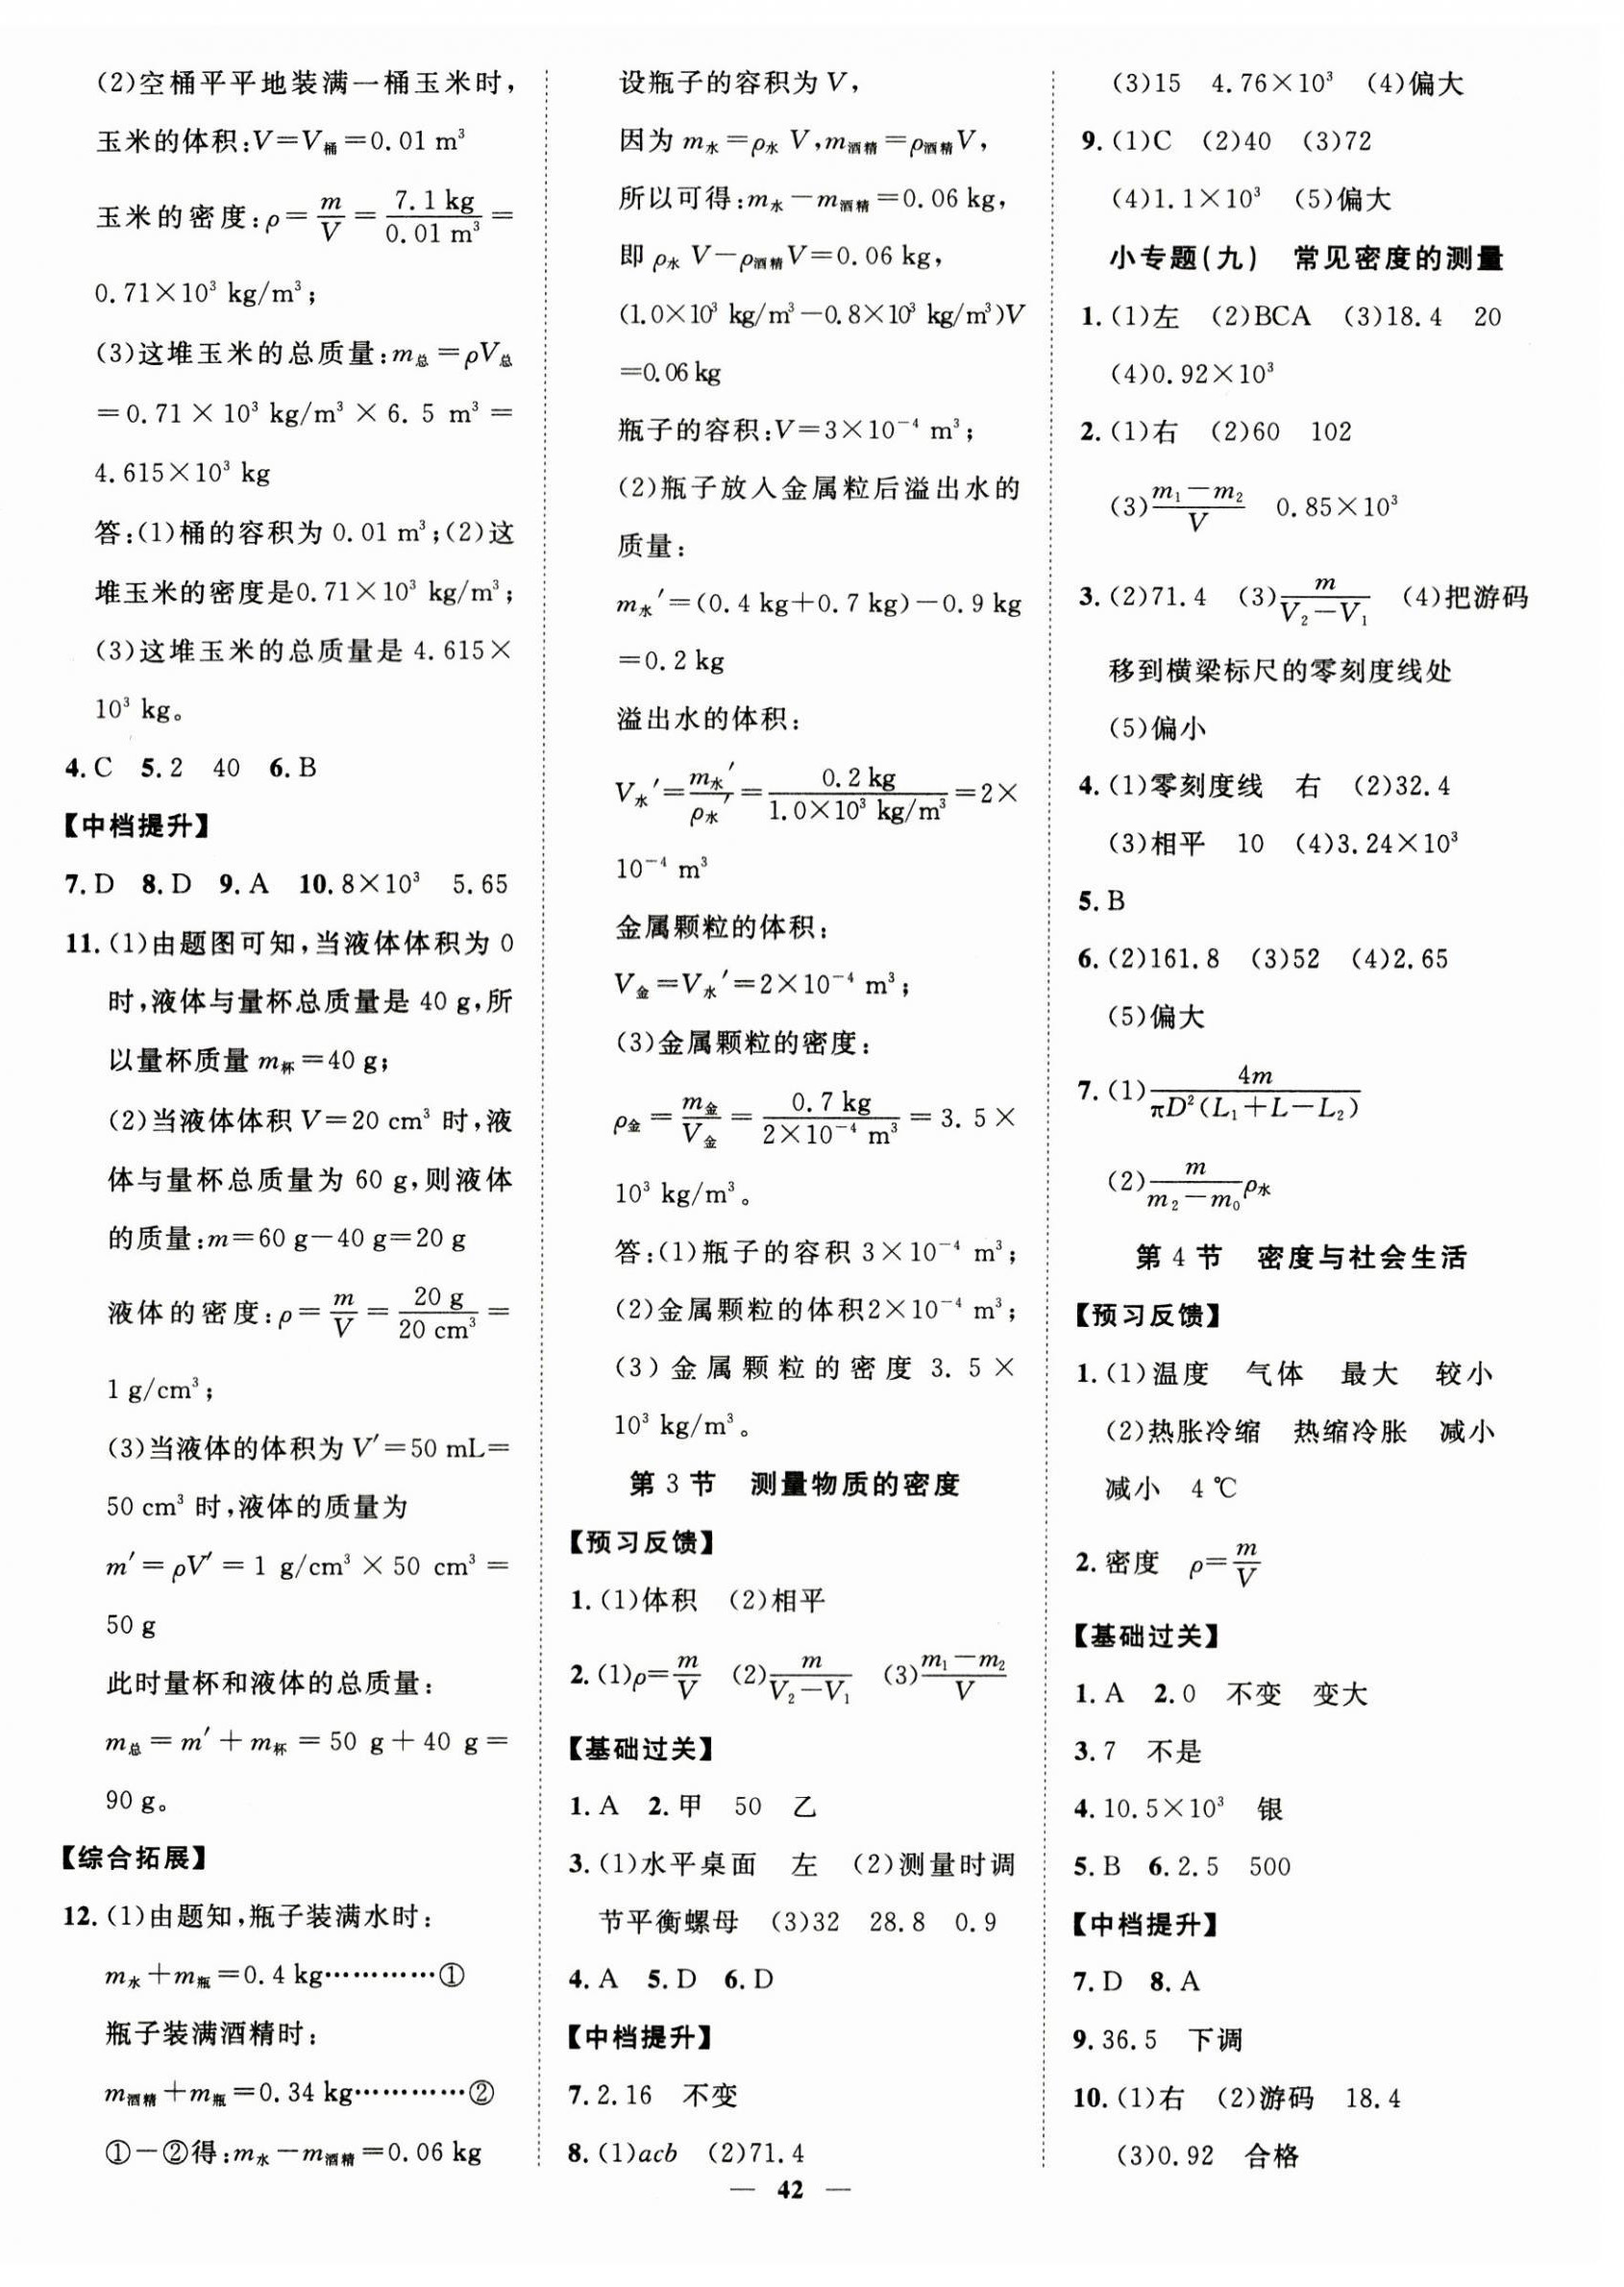 (2)空桶平平地装满一桶玉米时,
玉米的体积:V=V桶=0.01 m³
玉米的密度:ρ=m/V=7.1 kg/0.01 m³=
0.71×10³ kg/m³;
(3)这堆玉米的总质量:m总=ρV总
=0.71×10³ kg/m³×6.5 m³=
4.615×10³ kg
答:(1)桶的容积为 0.01 m³;(2)这
堆玉米的密度是0.71×10³ kg/m³;
(3)这堆玉米的总质量是 4.615×
10³ kg。
4.C 5.2 40 6.B
【中档提升】
7.D 8.D 9.A 10.8×10³ 5.65
11.(1)由题图可知,当液体体积为 0
时,液体与量杯总质量是 40 g,所
以量杯质量 m杯=40 g;
(2)当液体体积 V=20 cm³ 时,液
体与量杯总质量为 60 g,则液体
的质量:m=60 g-40 g=20 g
液体的密度:ρ=m/V=20 g/20 cm³=
1 g/cm³;
(3)当液体的体积为 V′=50 mL=
50 cm³ 时,液体的质量为
m′=ρV′=1 g/cm³×50 cm³=
50 g
此时量杯和液体的总质量:
m总=m′+m杯=50 g+40 g=
90 g。
【综合拓展】
12.(1)由题知,瓶子装满水时:
m水+m瓶=0.4 kg…………①
瓶子装满酒精时:
m酒精+m瓶=0.34 kg…………②
①-②得:m水-m酒精=0.06 kg
设瓶子的容积为 V,
因为 m水=ρ水 V,m酒精=ρ酒精V,
所以可得:m水-m酒精=0.06 kg,
即 ρ水 V-ρ酒精V=0.06 kg,
(1.0×10³ kg/m³-0.8×10³ kg/m³)V
=0.06 kg
瓶子的容积:V=3×10⁻⁴ m³;
(2)瓶子放入金属粒后溢出水的
质量:
m水′=(0.4 kg+0.7 kg)-0.9 kg
=0.2 kg
溢出水的体积:
V水′=m水′/ρ水′=0.2 kg/1.0×10³ kg/m³=2×
10⁻⁴ m³
金属颗粒的体积:
V金=V水′=2×10⁻⁴ m³;
(3)金属颗粒的密度:
ρ金=m金/V金=0.7 kg/2×10⁻⁴ m³=3.5×
10³ kg/m³。
答:(1)瓶子的容积 3×10⁻⁴ m³;
(2)金属颗粒的体积2×10⁻⁴ m³;
(3)金属颗粒的密度 3.5×
10³ kg/m³。
第 3 节 测量物质的密度
【预习反馈】
1.(1)体积 (2)相平
2.(1)ρ=m/V (2)m/(V₂-V₁) (3)(m₁-m₂)/V
【基础过关】
1.A 2.甲 50 乙
3.(1)水平桌面 左 (2)测量时调
节平衡螺母 (3)32 28.8 0.9
4.A 5.D 6.D
【中档提升】
7.2.16 不变
8.(1)acb (2)71.4
(3)15 4.76×10³ (4)偏大
9.(1)C (2)40 (3)72
(4)1.1×10³ (5)偏大
小专题(九) 常见密度的测量
1.(1)左 (2)BCA (3)18.4 20
(4)0.92×10³
2.(1)右 (2)60 102
(3)(m₁-m₂)/V 0.85×10³
3.(2)71.4 (3)m/(V₂-V₁) (4)把游码
移到横梁标尺的零刻度线处
(5)偏小
4.(1)零刻度线 右 (2)32.4
(3)相平 10 (4)3.24×10³
5.B
6.(2)161.8 (3)52 (4)2.65
(5)偏大
7.(1)4m/πD²(L₁+L-L₂)
(2)m/(m₂-m₀)ρ水
第 4 节 密度与社会生活
【预习反馈】
1.(1)温度 气体 最大 较小
(2)热胀冷缩 热缩冷胀 减小
减小 4 ℃
2.密度 ρ=m/V
【基础过关】
1.A 2.0 不变 变大
3.7 不是
4.10.5×10³ 银
5.B 6.2.5 500
【中档提升】
7.D 8.A
9.36.5 下调
10.(1)右 (2)游码 18.4
(3)0.92 合格
— 42 —